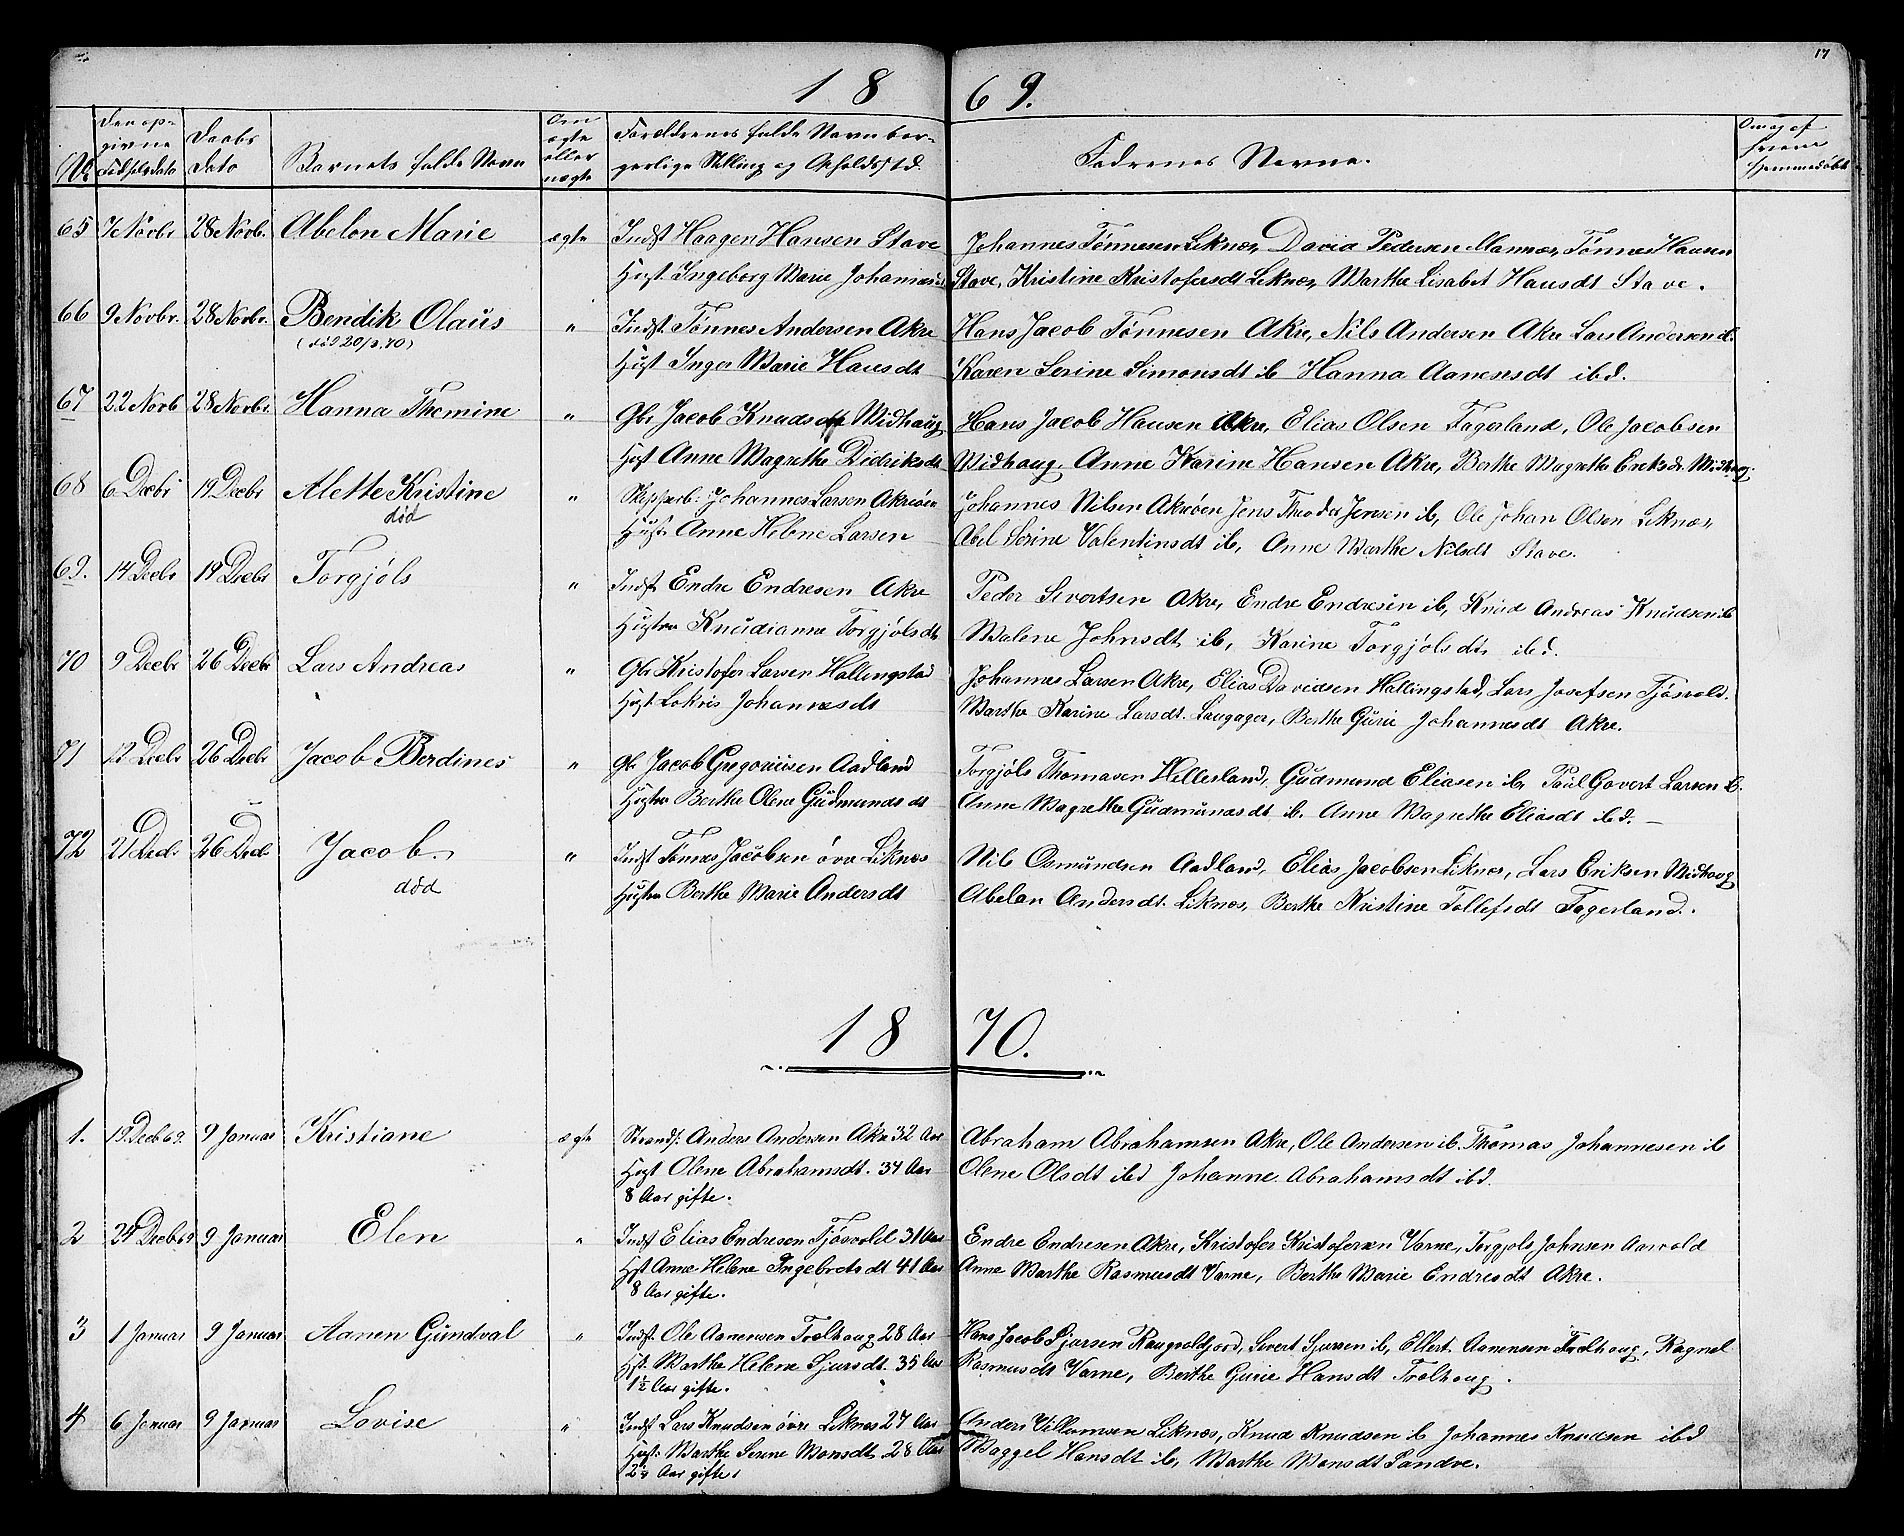 17
18 69.
No
Den opgivne Fødselsdato
Daabs Dato
Barnets fulde Navn
Om ægte eller uægte
Forældrenes fulde Navn borgerlige Stilling og Opholdssted.
Faddrenes Navne.
hjemmedøbt
65 7 Novbr 28 Novbr. Abelon Marie ægte Indst Haagen Hansen Stave Johannes Tønnesen Liknes, David Pedersen Mannes, Tønnes Hansen
Hust. Ingeborg Marie Johannesdt Stave, Kristine Kristofersdt Liknes, Marthe Lisabet Hansdt Stave.
66 9 Novbr. 28 Novbr. Bendik Olaus " Indst. Tønnes Andersen Akre Hans Jacob Tønnesen Akre, Nils Andersen Akre Lars Andersen
(død 20/3 70) Hust Inger Marie Hansdt Karen Serine Simonsdt ib Hanna Aanensdt ibd.
67 22 Novb 28 Novbr. Hanna Themine " Gbr Jacob Knudsen Midhaug Hans Jacob Hansen Akre, Elias Olsen Fagerland, Ole Jacobsen
Hust Anne Magrethe Didriksdt Midhaug. Anne Karine Hansen Akre, Berthe Magrethe Eriksdt Midhaug
68 6 Decbr 19 Decbr Alette Kristine " Johannes Larsen Akreøen Johannes Nilsen Akreøen Jens Theodor Jensen ib, Ole Johan Olsen Liknes,
død Hustr Anne Helene Larsen Abel Serine Valentinsdt ib, Anne Marthe Nilsdt Stave.
69. 14 Decbr 19 Decbr Torgjøls " Indst Endre Endresen Akre Peder Sivertsen Akre, Endre Endresen ib, Knud Andreas Knudsen ib
Hustru Knudianne Torgjølsdt Malene Johnsdt ib, Karine Torgjølsdt ibd.
70 9 Decbr 26 Decbr Lars Andreas " Gbr Kristofer Larsen Hallingstad Johannes Larsen Akre, Elias Davidsen Hallingstad, Lars Josefsen Tjøsvold.
Hust Lokris Johannesdt Marthe Karine Larsdt. Langager, Berthe Gurie Johannesdt Akre.
71 12 Decbr 26 Decbr Jacob Berdines " Gbr Jacob Gregoriusen Aadland Torgjøls Thomasen Hellesland, Gudmund Eliasen ib, Paul Govert Larsen ib.
Hustru Berthe Olene Gudmundsdt Anne Magrethe Gudmundsdt ib. Anne Magrethe Eliasdt ibd. —
72 21 Decbr 26 Decbr Jacob. " Indst Tønnes Jacobsen øvre Liknes Nils Osmundsen Aadland, Elias Jacobsen Liknes, Lars Eriksen Midhaug
død Hustru Berthe Marie Andersdt Abelon Andersdt. Liknes, Berthe Kristine Tollefsdt Fagerland.
18 70.
1. 19 Decb 69. 9 Januar Kristiane ægte Strands. Anders Andersen Akre 32 Aar Abraham Abrahamsen Akre, Ole Andersen ib. Thomas Johannesen ib
Hust Olene Abrahamsdt. 34 Aar Olene Olsdt ibd Johanne Abrahamsdt ibd.
8 Aar gifte.
2 24 Decb 69 9 Januar Elen " Indst Elias Endresen Tjøsvold 31 Aar Endre Endresen Akre, Kristofer Kristofersen Varne, Torgjøls Johnsen Aasvold
Hst Anne Helene Ingebretsdt 41 Aar Anne Marthe Rasmusdt Varne, Berthe Marie Endresdt Akre.
8 Aar gifte.
3 1 Januar 9 Januar Aanen Gundval " Indst. Ole Aanensen Trælhaug 28 Aar Hans Jacob Sjursen Raugvaldfjord, Sivert Sjursen ib, Ellert Aanensen Trælhaug, Ragnel
Hst. Marthe Helene Sjursdt. 35 Aar Rasmusdt Varne, Berthe Gurie Hansdt Trælhaug.
1½ Aar gifte.
4 6 Januar 9 Januar Lovise " Indst Lars Knudsen øvre Liknes 27 Aar Anders Villumsen Liknes, Knud Knudsen ib Johannes Knudsen ibd
Hust. Marthe Serine Monsdt 28 Aar Maggel Hansdt ib, Marthe Monsdt Sandve.
2½ Aar gifte